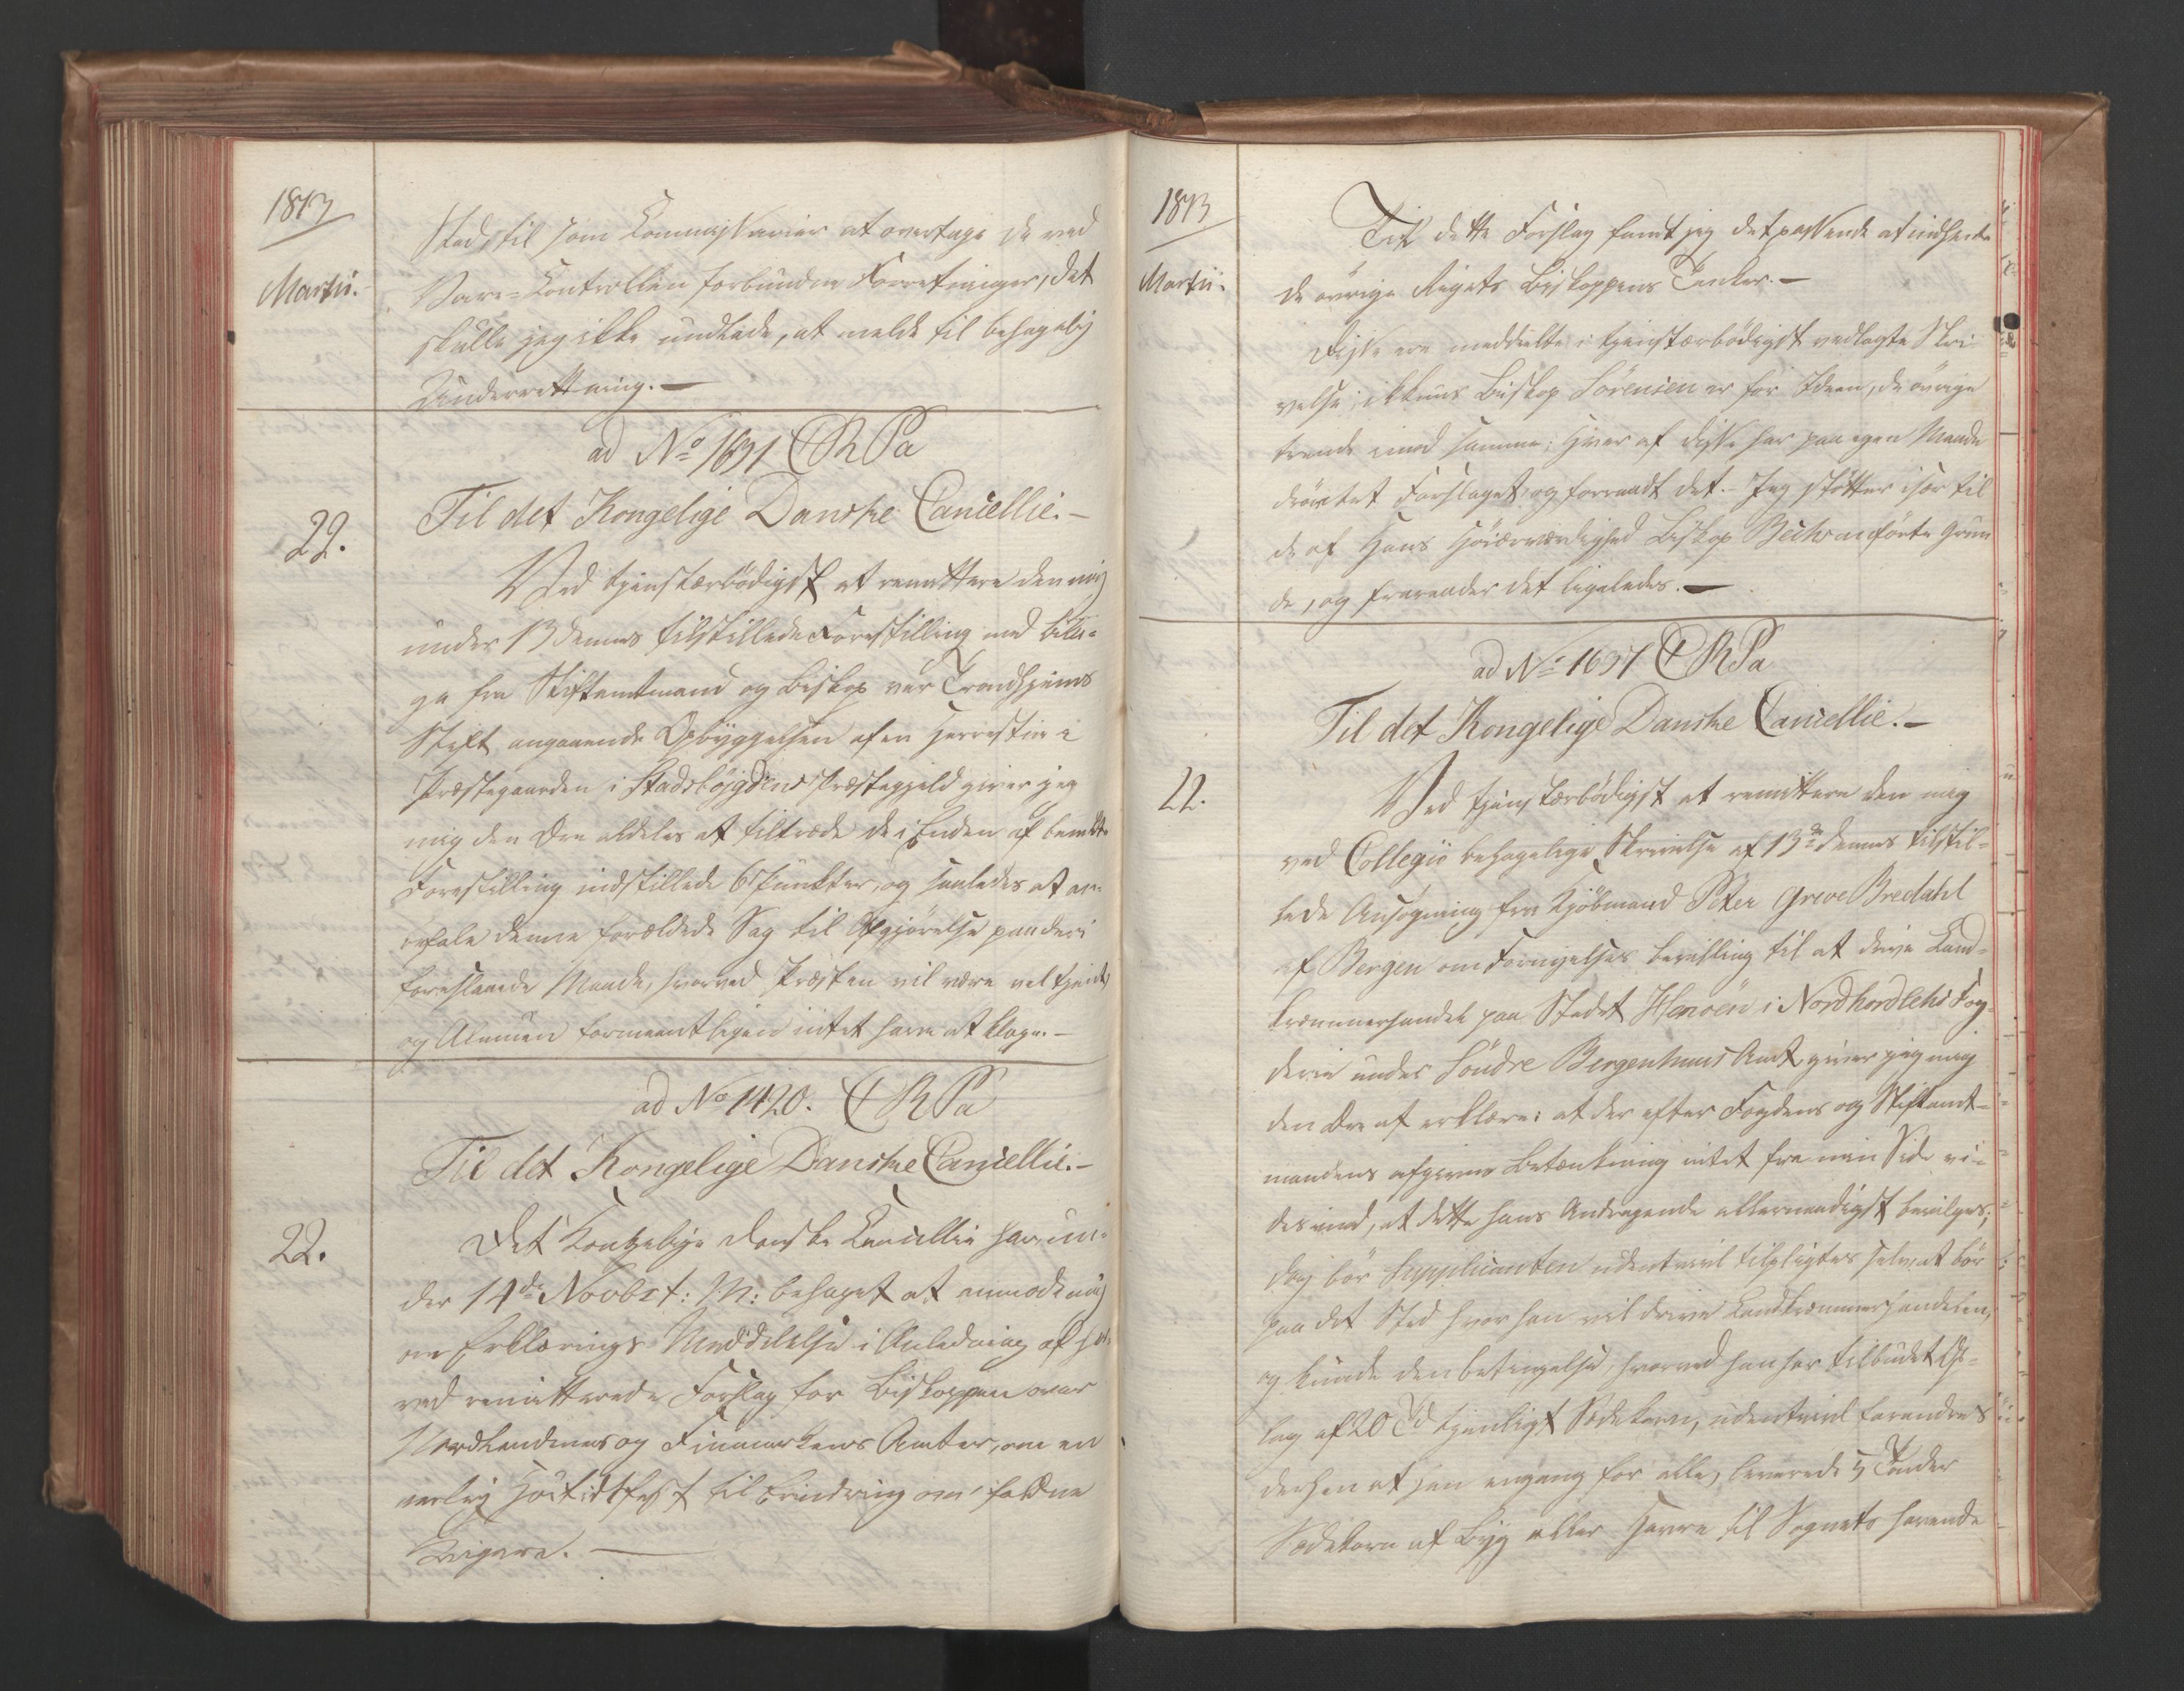 1813
Martii.
Sted, til som Commissarier at overtage de ved
Vare-Controllen forbundne Forretninger, det
skulle jeg ikke undlade, at melde til behagelig
Underretning. —
ad No 1631 CRPa
Til det Kongelige Danske Cancellie. —
22.
Ved tjenstærbödigst at remittere den mig
under 13 dennes tilstillede Forestilling med Bila-
ge fra Stiftamtmand og Biskop over Trondhjems
Stift angaaende Opbyggelsen af en i
Præstegaarden i Stadsböjgdens Præstegjeld giver jeg
mig den Ære aldeles at tiltræde de i Enden af bemeldte
Forestilling indstillede 6 Punkter, og saaledes at an-
befale denne forældede Sag til Afgjörelse paa den i
foreslaaede Maade, hvorved Præsten vil være vel tjent
og Almuen formeentligen intet have at klage. —
ad No 1420. CRPa
Til det Kongelige Danske Cancellie. —
22.
Det Kongelige Danske Cancellie har un-
der 14de Novbr f: M: behaget at anmode mig
om Erklærings Meddelelse i Anledning af her-
ved remitterede Forslag fra Biskoppen over
Nordlandenes og Finmarkens Amter, om en
aarlig Höitidsfest til Erindring om faldne
Krigere. —
1813
Martii.
Til dette Forslag fandt jeg det passende at indhente
de övrige Rigets Biskoppers Tanker. —
Disse ere meddeelte i tjenstærbödigst vedlagte Skri-
velser; ikkuns Biskop Sörensen er for Ideen, de övrige
trende imod samme; Hver af disse har paa egen Maade
dröftet Forslaget og fraraadt det. — Jeg stötter især til
de af Hans Höiærværdighed Biskop Bech anförte Grun
de, og fraraader det ligeledes. —
ad No 1637 CRPa
Til det Kongelige Danske Cancellie. —
22.
Ved tjenstærbödigst at remittere den mig
ved Collegii behagelige Skrivelse af 13de dennes tilstil-
lede Ansögning fra Kjöbmand Peter Greve Bredahl
af Bergen om Fornyelses Bevilling til at drive Land-
kræmmerhandel paa Stedet Hernöen i Nordhordlehns Fog-
derie under Söndre Bergenhuus Amt, giver jeg mig
den Ære at erklære: at der efter Fogdens og Stiftamt-
mandens afgivne Betænkning intet fra min Side vi-
des imod, at dette hans Andragende allernaadigst bevilges;
dog bör Supplicanten udentvivl tilpligtes selv, at boe
paa det Sted hvor han vil drive Landkræmmerhandelen,
og kunde den betingelse, hvorved han har tilbudet Op-
lag af 20 Td tjenligt Sædekorn, udentvivl forandres
derhen at han engang for alle, leverede 5 Tönder
Sædekorn af Byg eller Havre til Sognets havende